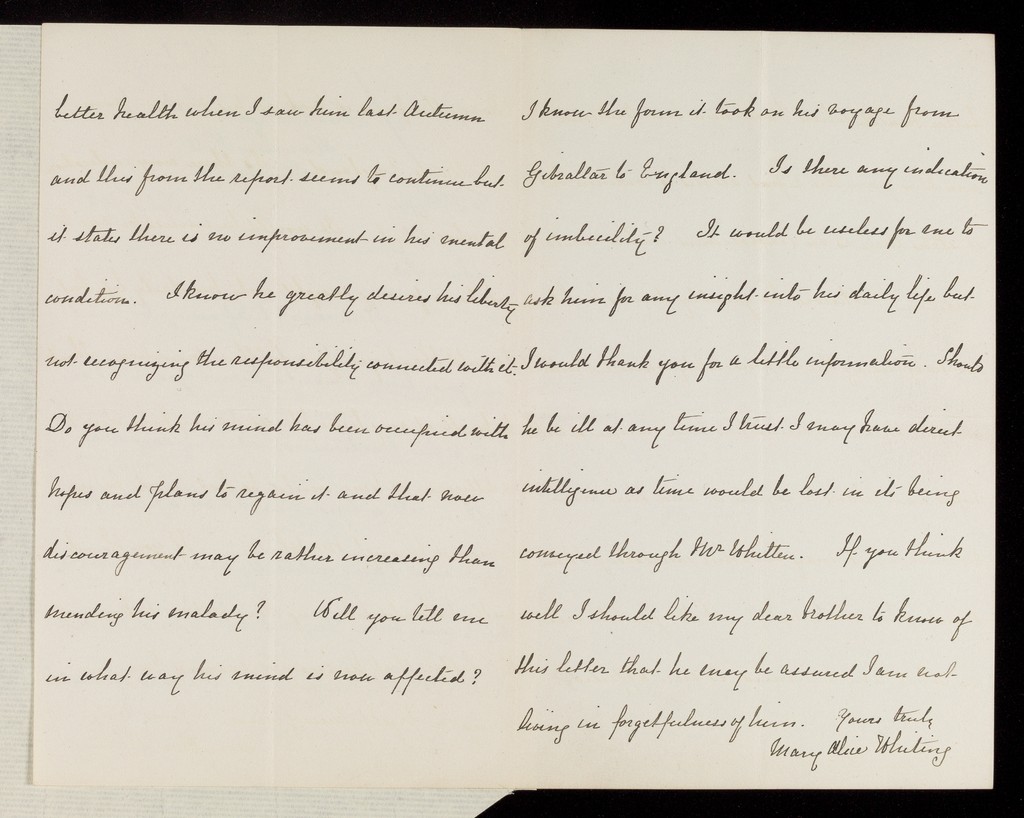 better health when I saw him last Autumn
and this from the report seems to continue but
it states there is no improvement in his mental
condition. I know he greatly desires his liberty
not recognizing the responsibility connected with it.
Do you think his mind has been occupied with
hopes and plans to regain it and that now
discouragement may be rather increasing than
mending his malady? Will you tell me
in what way his mind is now affected?
I know the form it took on his voyage from
Gibraltar to England. Is there any indication
of imbecility? It would be useless for me to
ask him for any insight into his daily life but
I would thank you for a little information. Should
he be ill at any time I trust I may have direct
intelligence as time would be lost in its being
conveyed through Mr Whitten. If you think
well I should like my dear brother to know of
this letter that he may be assured I am not
living in forgetfulness of him. Yours truly
Mary Alice Whiting